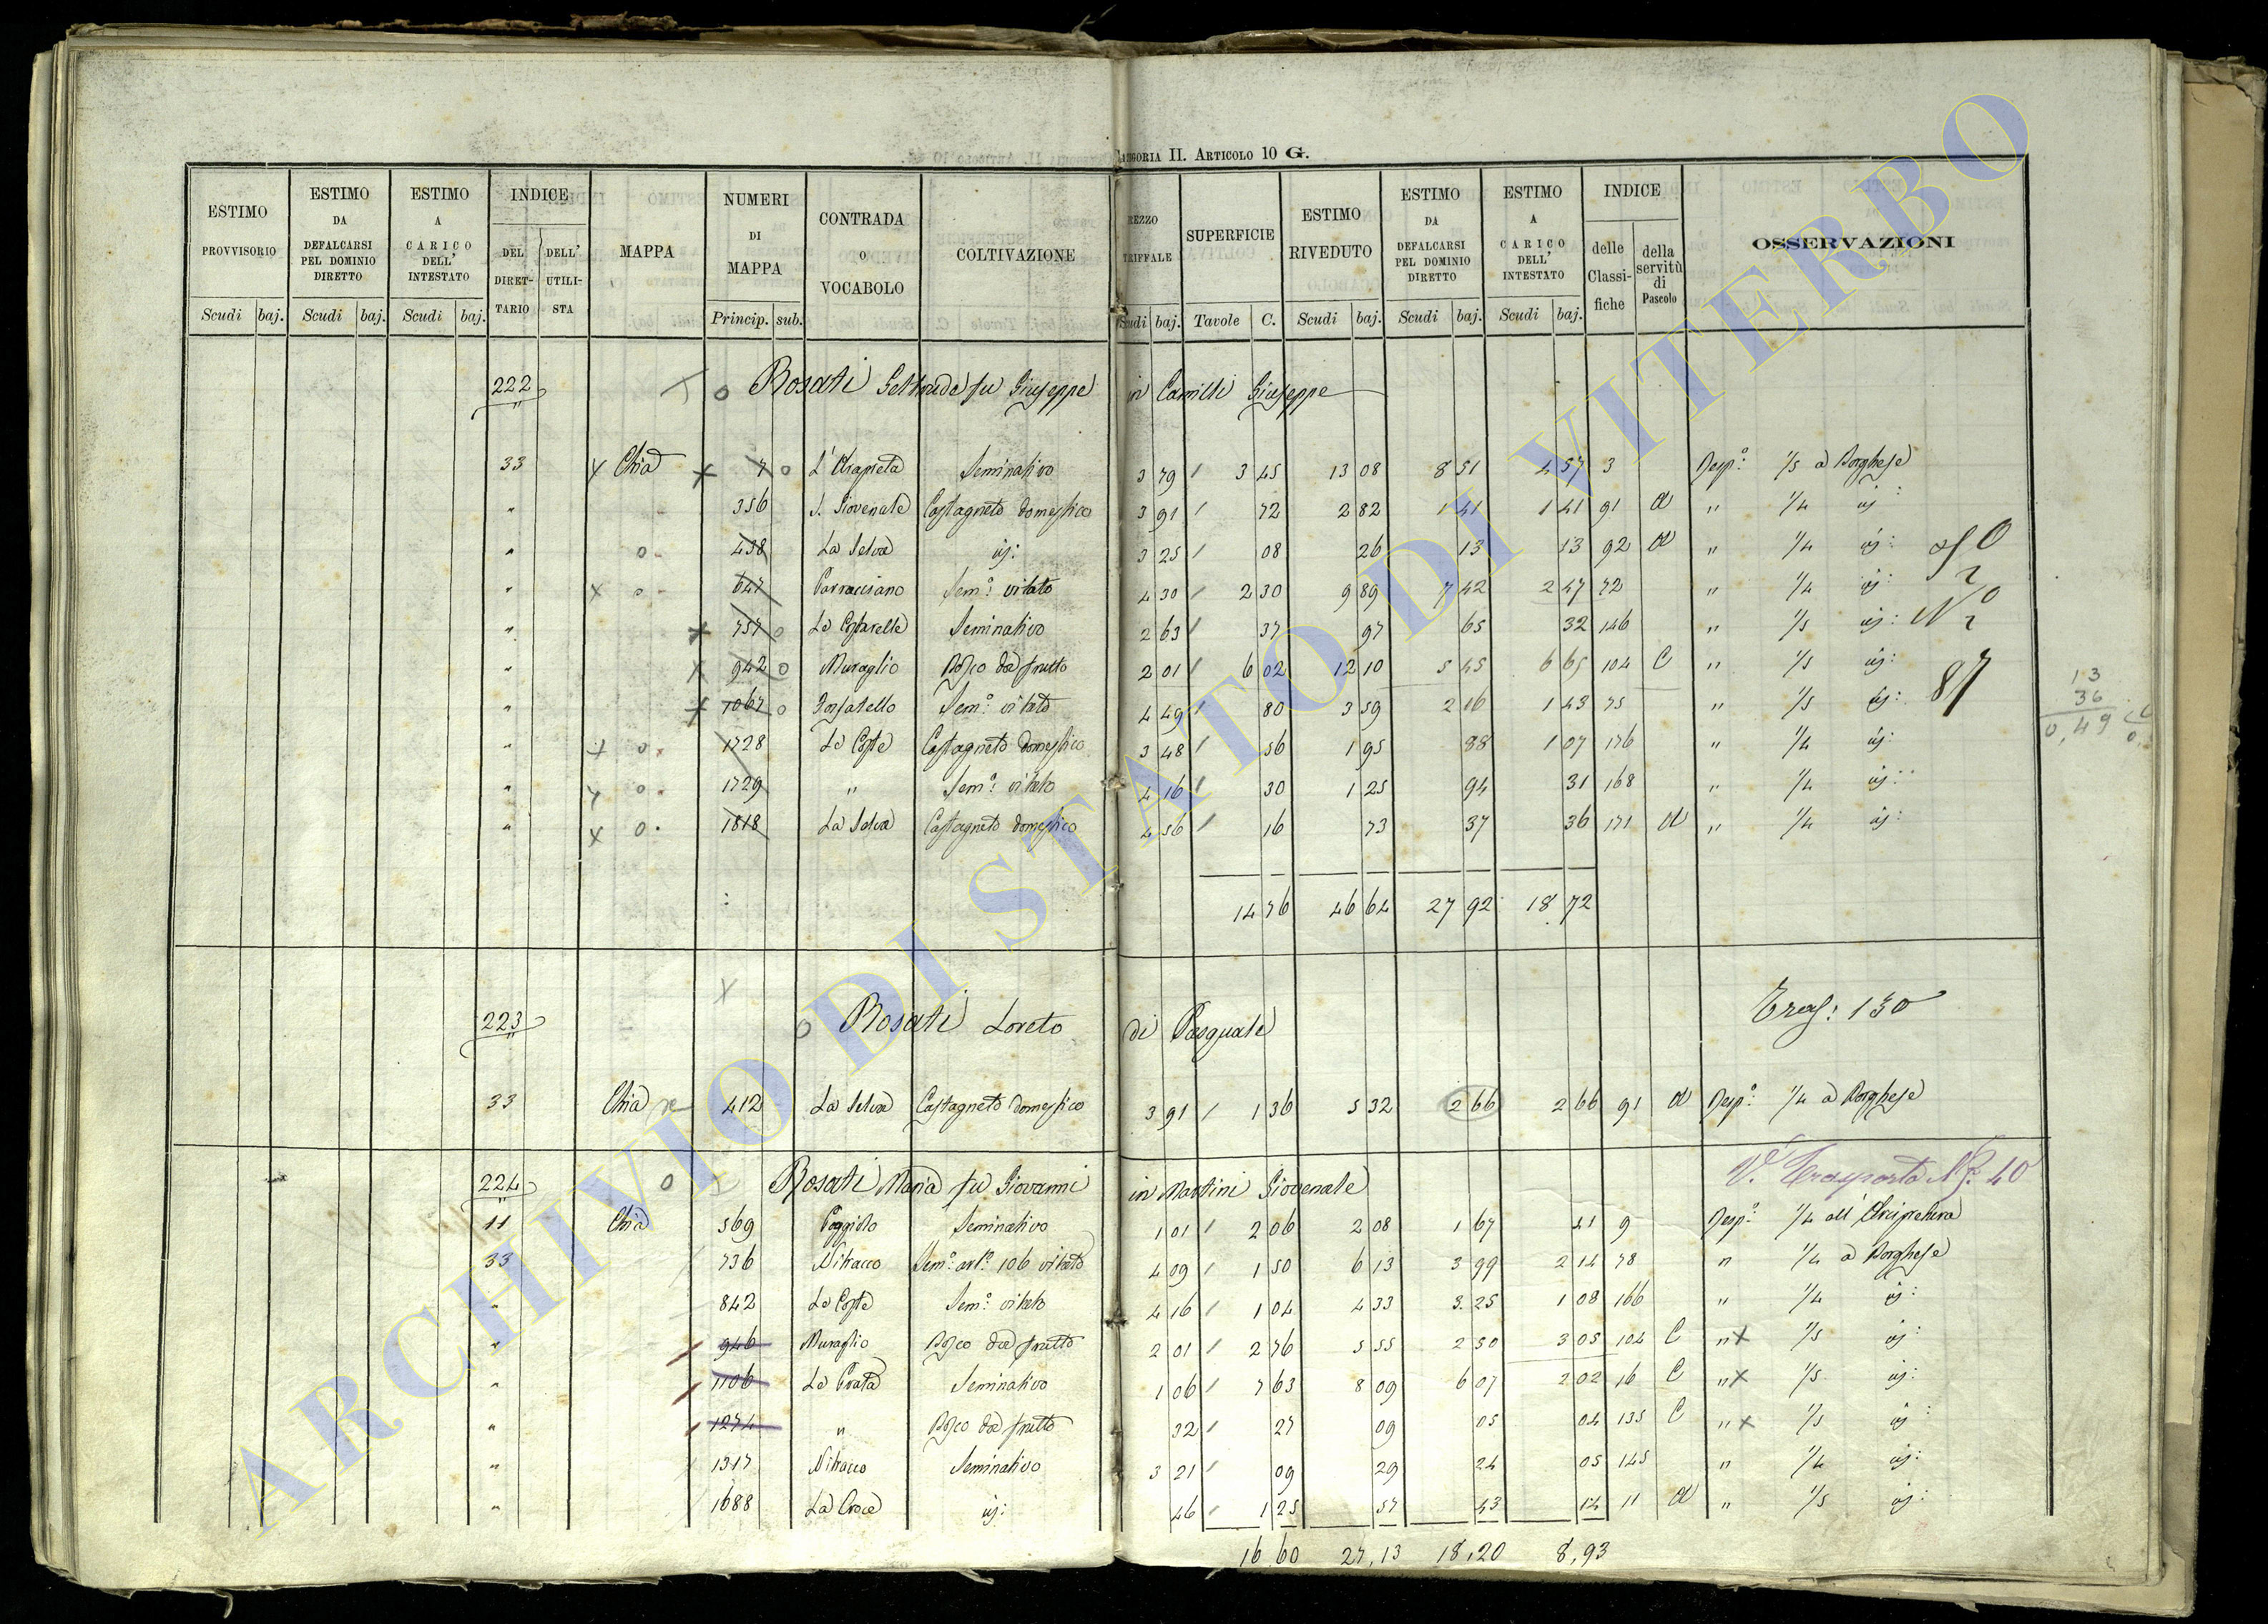 CATEGORIA II. ARTICOLO 10 G.
ESTIMO PROVVISORIO | ESTIMO DA DEFALCARSI PEL DOMINIO DIRETTO | ESTIMO A CARICO DELL' INTESTATO | INDICE DEL DIRETTARIO | DELL' UTILISTA | MAPPA | NUMERI DI MAPPA | CONTRADA O VOCABOLO | COLTIVAZIONE | PREZZO TRIFFALE | SUPERFICIE | ESTIMO RIVEDUTO | ESTIMO DA DEFALCARSI PEL DOMINIO DIRETTO | ESTIMO A CARICO DELL' INTESTATO | INDICE delle Classifiche | della servitù di Pascolo | OSSERVAZIONI
Scudi | baj. | Scudi | baj. | Scudi | baj. | Princip. | sub. | Scudi | baj. | Tavole | C. | Scudi | baj. | Scudi | baj. | Scudi | baj.
222 o Rosati Geltrude fu Giuseppe in Camilli Giuseppe
33 x Chia x 7 o L'Arapreta Seminativo 3 79 3 45 13 08 8 51 4 57 3 Resp: 1/5 a Borghese
" 356 S. Giovenale Castagneto domestico 3 91 72 2 82 1 41 1 41 91 a " 1/4 id:
" o 438 La Selva id: 3 25 08 26 13 13 92 a " 1/4 id:
" x o 647 Carracciano Sem: vitato 4 30 2 30 9 89 7 42 2 47 72 " 1/4 id:
" x 757 o Le Costarelle Seminativo 2 63 37 97 65 32 146 " 1/5 id: N°
" x 942 o Muraglio Bosco da frutto 2 01 6 02 12 10 5 45 6 65 104 C " 1/5 id:
" x 1067 o Fossatello Sem: vitato 4 49 80 3 59 2 16 1 43 75 " 1/5 id: 87
" x o 1728 Le Coste Castagneto domestico 3 48 56 1 95 88 1 07 176 " 1/4 id:
" x o 1729 " Sem: vitato 4 16 30 1 25 94 31 168 " 1/4 id:
" x o 1818 La Selva Castagneto domestico 4 56 16 73 37 36 171 a " 1/4 id:
13
36
0,49
14 76 46 64 27 92 18 72
x
223 o Rosati Loreto di Pasquale Tras: 130
33 Chia 412 La Selva Castagneto domestico 3 91 1 36 5 32 2 66 2 66 91 a Resp: 1/4 a Borghese
224 o Rosati Maria fu Giovanni in Martini Giovenale V. Trasporto N° 40
11 Chia 569 Poggiolo Seminativo 1 01 2 06 2 08 1 67 41 9 Resp: 1/4 all'Arcipretura
33 736 Nitracco Sem: arb: 106 vitato 4 09 1 50 6 13 3 99 2 14 78 " 1/4 a Borghese
" 842 Le Coste Sem: vitato 4 16 1 04 4 33 3 25 1 08 166 " 1/4 id:
" 946 Muraglio Bosco da frutto 2 01 2 76 5 55 2 50 3 05 104 C " x 1/5 id:
" 1106 Le Prata Seminativo 1 06 7 63 8 09 6 07 2 02 16 C " x 1/5 id:
" 1274 " Bosco da frutto 32 27 09 05 04 135 C " x 1/5 id:
" 1317 Nitracco Seminativo 3 21 09 29 24 05 145 " 1/4 id:
" 1688 La Croce id: 46 1 25 57 43 14 11 a " 1/5 id:
16 60 27,13 18,20 8,93
ARCHIVIO DI STATO DI VITERBO